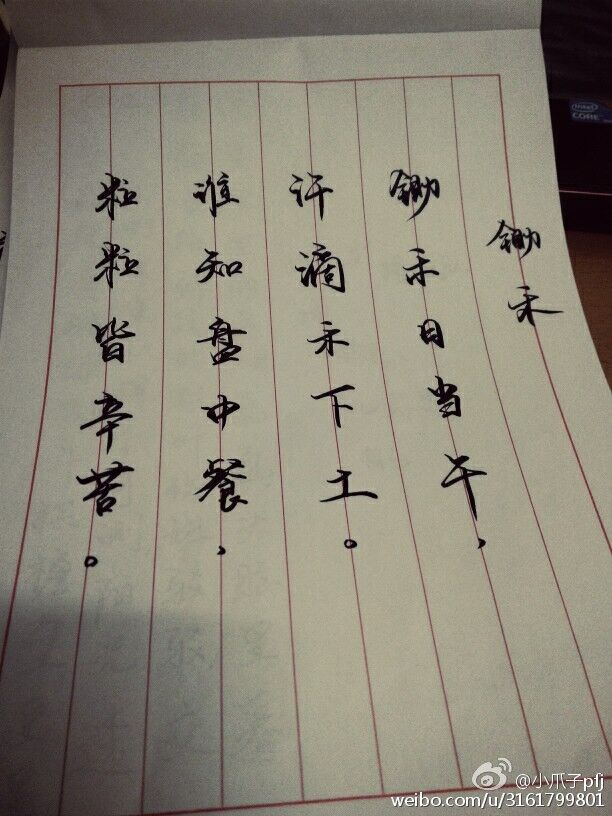 锄禾
锄禾日当午，
汗滴禾下土。
谁知盘中餐，
粒粒皆辛苦。
intel
CORE
@小爪子pfj
weibo.com/u/3161799801